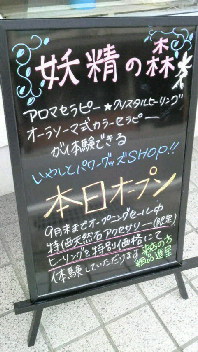 妖精の森
アロマセラピー★クリスタルヒーリング
オーラソーマ式カラーセラピー
が体験できる
いやしとパワーグッズSHOP!!
本日オープン
9月末までオープニングセール中
特価天然石アクセサリー(限定)
ヒーリングを特別価格にて
体験していただけます